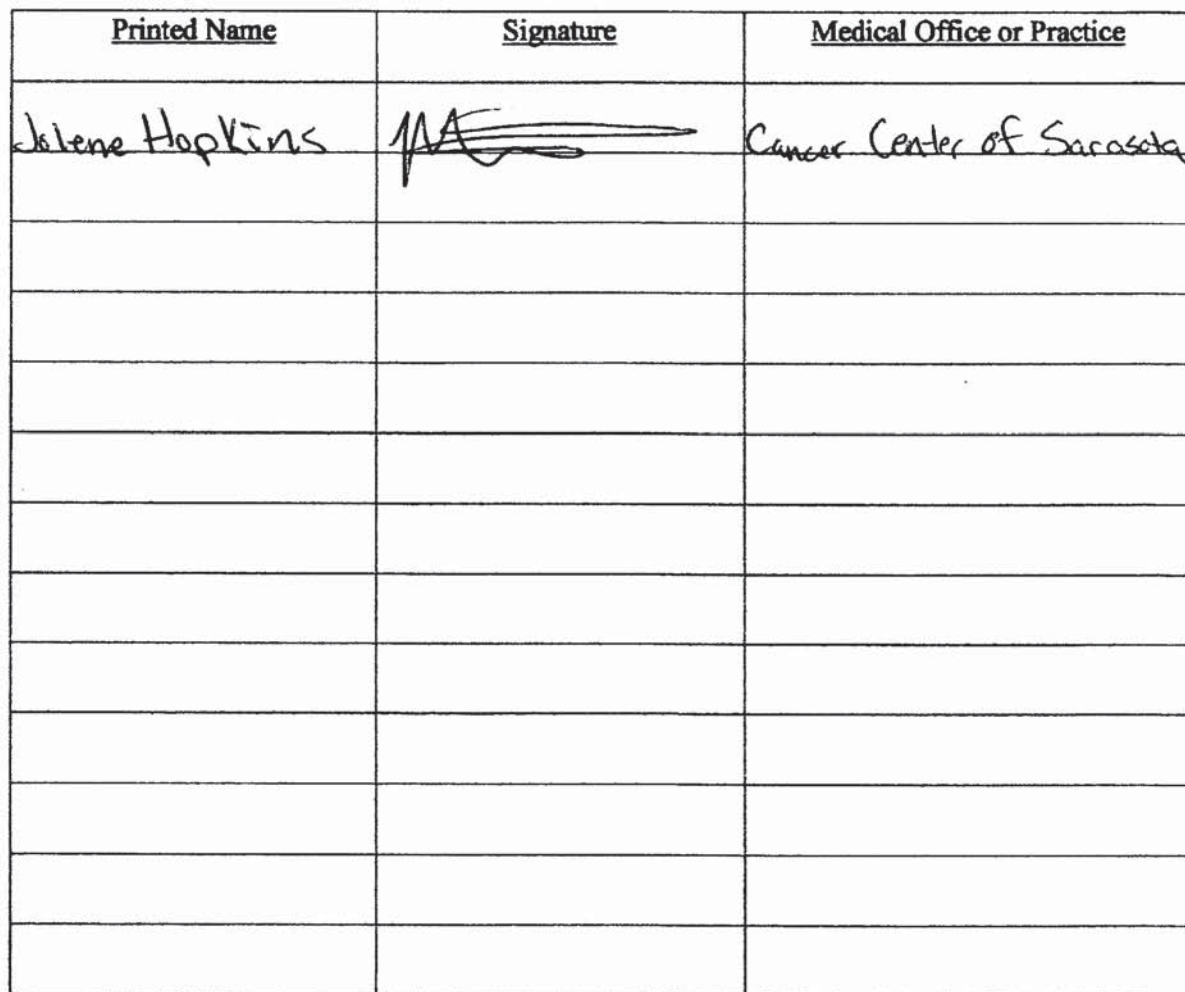 Printed Name Signature Medical Office or Practice
Jolene Hopkins Cancer Center of Sarasota